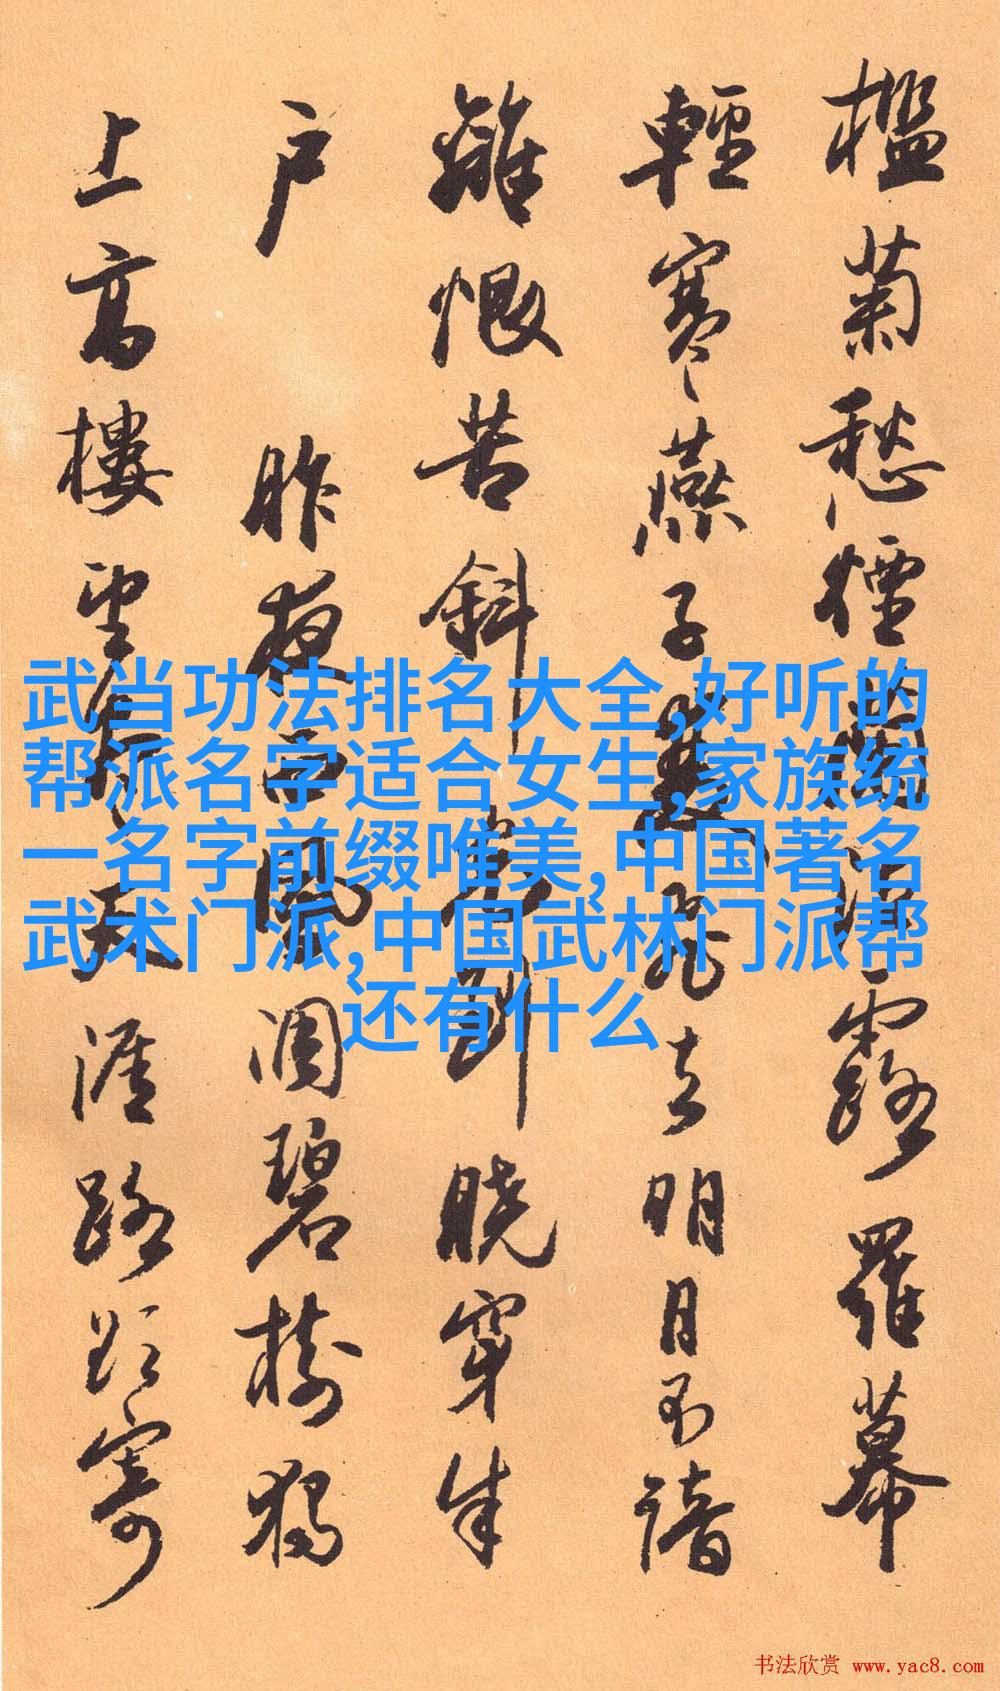 檻菊愁煙蘭泣露羅幕
輕寒燕子雙飛去明月不諳
離恨苦斜光到曉穿朱
户 昨夜西風凋碧樹獨
上高樓望盡天涯路欲寄
武当功法排名大全,好听的
帮派名字适合女生,家族统
一名字前缀唯美,中国著名
武术门派,中国武林门派帮
还有什么
书法欣赏 www.yac8.com